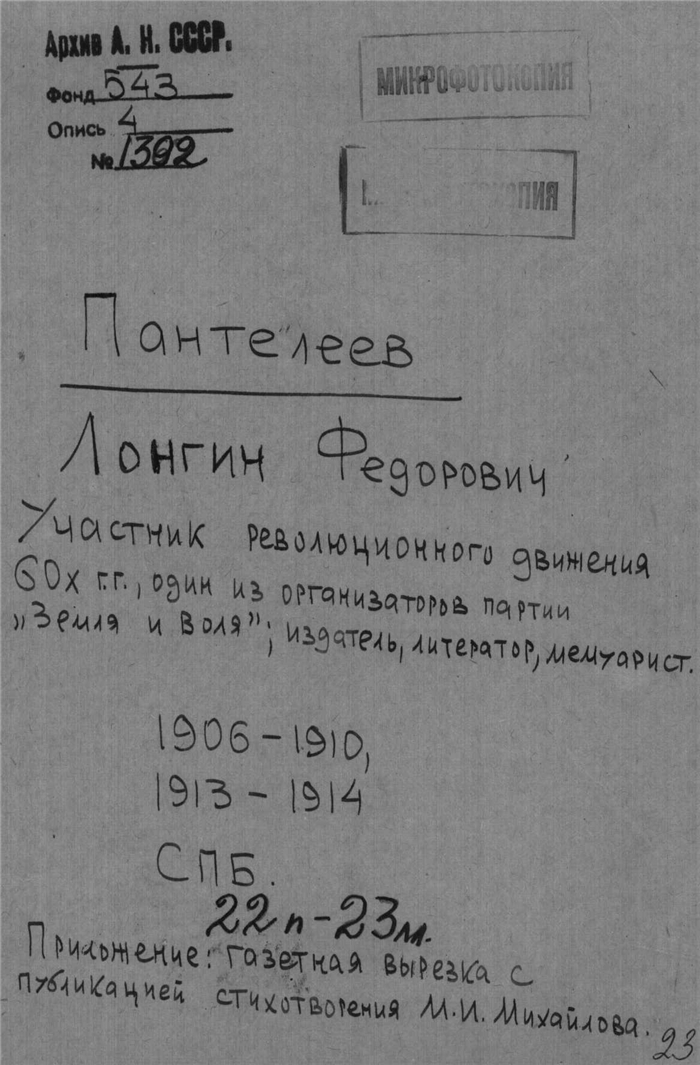 Архив А. Н. СССР.
Фонд 543
Опись 4
№ 1392
МИКРОФОТОКОПИЯ
Пантелеев
Лонгин Федорович
Участник революционного движения
60х г.г., один из организаторов партии
„Земля и Воля”; издатель, литератор, мемуарист.
1906 – 1910,
1913 – 1914
СПБ.
22 п – 23 м.
Приложение: газетная вырезка с
публикацией стихотворения М.И. Михайлова.
23